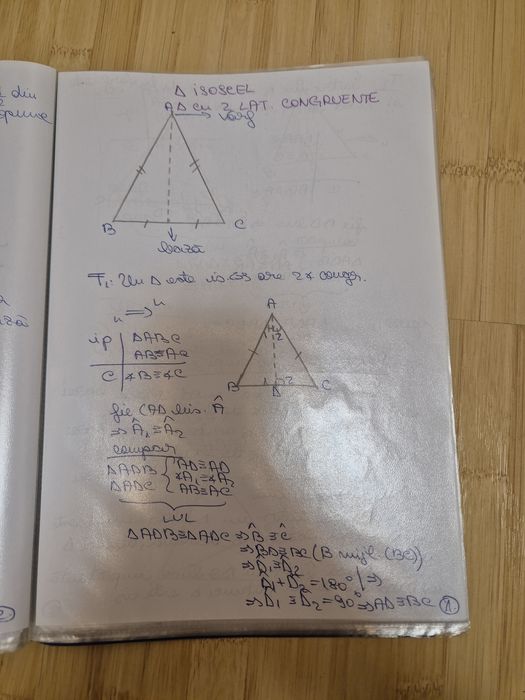 din
Δ isoscel
Δ cu 2 LAT. CONGRUENTE
A
vârf
B
C
bază
T₁: Un Δ este is. ⇔ are 2 ∢ congr.
"⇒"
ip | ΔABC
AB≡AC
C | ∢B≡∢C
A
1 2
B 1 2 C
D
fie (AD bis. Â
⇒ Â₁≡Â₂
compar
ΔADB { AD≡AD
ΔADC ∢A₁≡∢A₂
AB≡AC
LUL
ΔADB≡ΔADC ⇒ B̂≡Ĉ
⇒ BD≡DC (D mijl. (BC))
⇒ D̂₁≡D̂₂
D̂₁+D̂₂=180° | ⇒
⇒ D̂₁≡D̂₂=90° ⇒ AD≡BC
1